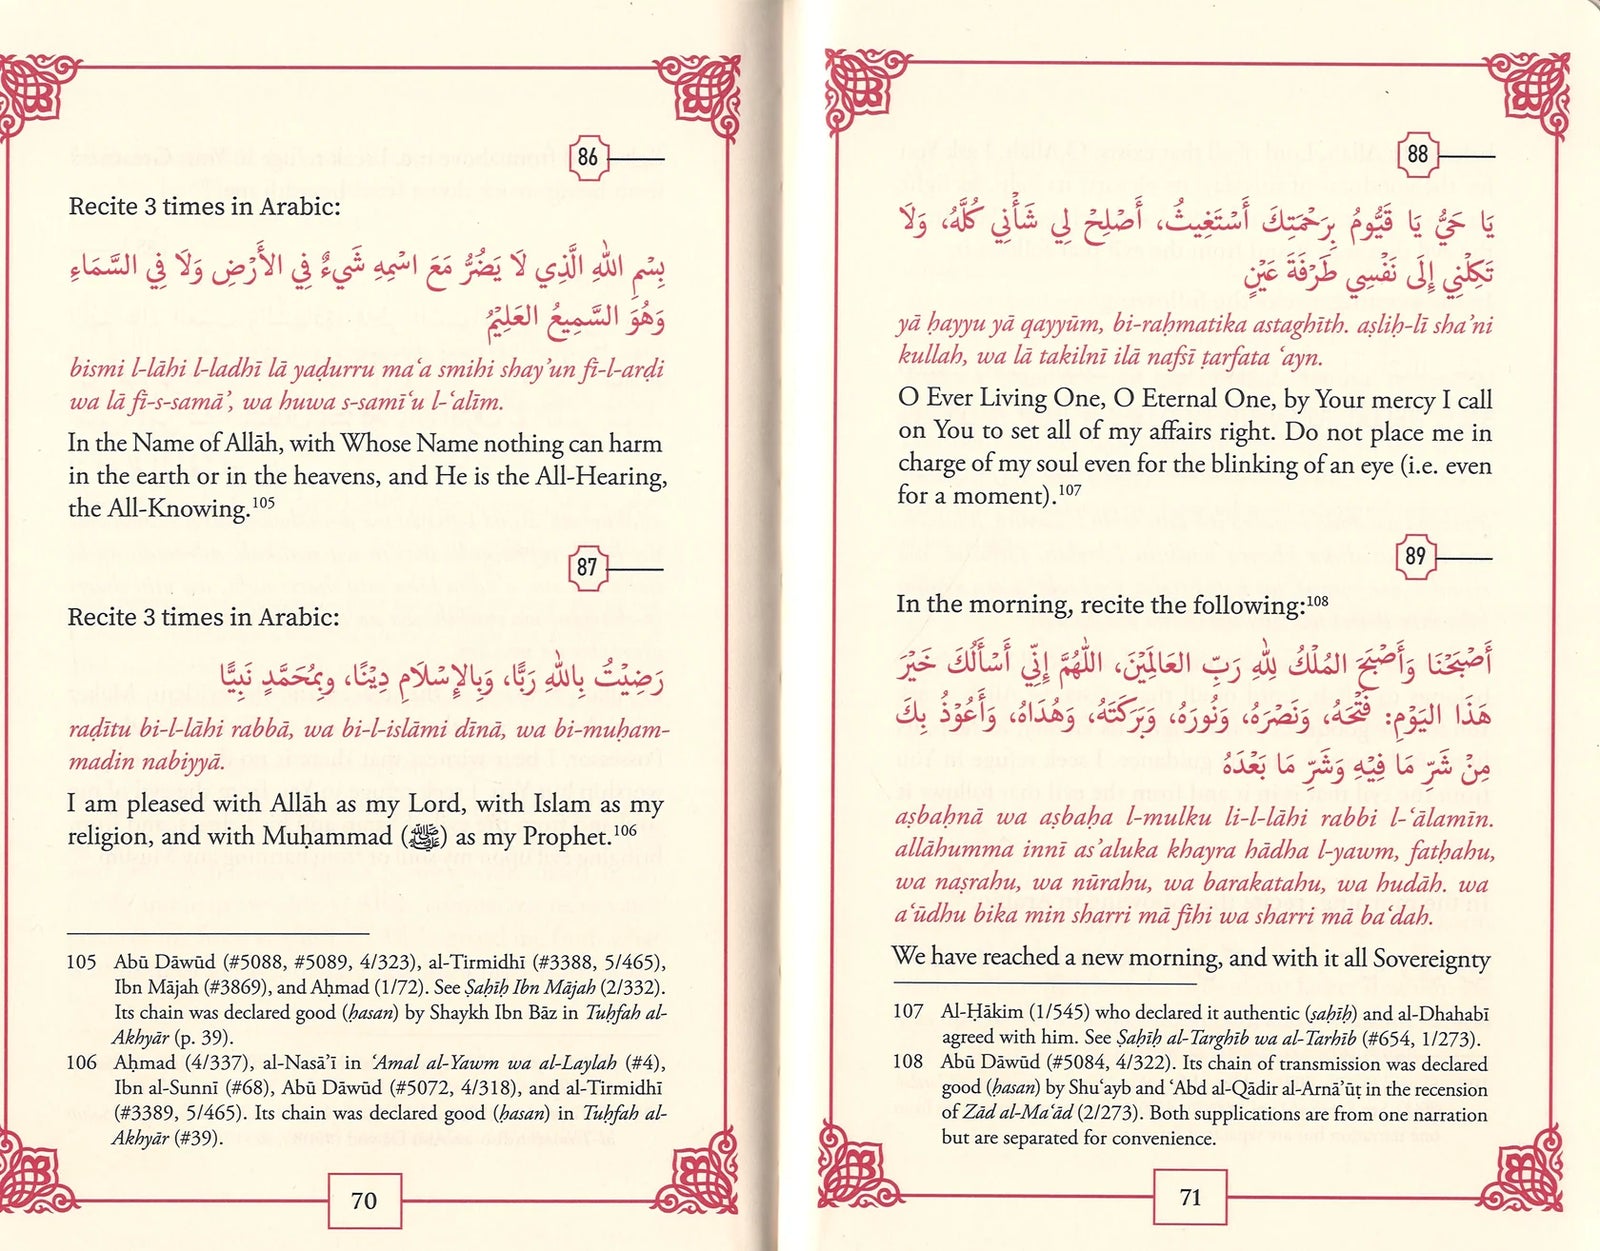 86
Recite 3 times in Arabic:
بِسْمِ اللهِ الَّذِي لَا يَضُرُّ مَعَ اسْمِهِ شَيءٌ فِي الأَرْضِ وَلَا فِي السَّمَاءِ
وَهُوَ السَّمِيعُ العَلِيْمُ
bismi l-lāhi l-ladhī lā yaḍurru ma‘a smihi shay’un fī-l-arḍi
wa lā fī-s-samā’, wa huwa s-samī‘u l-‘alīm.
In the Name of Allāh, with Whose Name nothing can harm
in the earth or in the heavens, and He is the All-Hearing,
the All-Knowing.¹⁰⁵
87
Recite 3 times in Arabic:
رَضِيْتُ بِاللهِ رَبًّا، وَبِالإِسْلَامِ دِيْنًا، وبِمُحَمَّدٍ نَبِيًّا
raḍītu bi-l-lāhi rabbā, wa bi-l-islāmi dīnā, wa bi-muḥam-
madin nabiyyā.
I am pleased with Allāh as my Lord, with Islam as my
religion, and with Muḥammad (ﷺ) as my Prophet.¹⁰⁶
105 Abū Dāwūd (#5088, #5089, 4/323), al-Tirmidhī (#3388, 5/465),
Ibn Mājah (#3869), and Aḥmad (1/72). See Ṣaḥīḥ Ibn Mājah (2/332).
Its chain was declared good (ḥasan) by Shaykh Ibn Bāz in Tuḥfah al-
Akhyār (p. 39).
106 Aḥmad (4/337), al-Nasā’ī in ‘Amal al-Yawm wa al-Laylah (#4),
Ibn al-Sunnī (#68), Abū Dāwūd (#5072, 4/318), and al-Tirmidhī
(#3389, 5/465). Its chain was declared good (ḥasan) in Tuḥfah al-
Akhyār (#39).
70
88
يَا حَيُّ يَا قَيُّومُ بِرَحْمَتِكَ أَسْتَغِيثُ، أَصْلِحْ لِي شَأْنِي كُلَّهُ، وَلَا
تَكِلْنِي إِلَى نَفْسِي طَرْفَةَ عَيْنٍ
yā ḥayyu yā qayyūm, bi-raḥmatika astaghīth. aṣliḥ-lī sha’ni
kullah, wa lā takilnī ilā nafsī ṭarfata ‘ayn.
O Ever Living One, O Eternal One, by Your mercy I call
on You to set all of my affairs right. Do not place me in
charge of my soul even for the blinking of an eye (i.e. even
for a moment).¹⁰⁷
89
In the morning, recite the following:¹⁰⁸
أَصْبَحْنَا وَأَصْبَحَ المُلْكُ لِلهِ رَبِّ العَالَمِيْنَ، اللّٰهُمَّ إِنِّي أَسْأَلُكَ خَيْرَ
هَذَا اليَوْمِ: فَتْحَهُ، وَنَصْرَهُ، وَنُورَهُ، وَبَرَكَتَهُ، وَهُدَاهُ، وَأَعُوْذُ بِكَ
مِنْ شَرِّ مَا فِيْهِ وَشَرِّ مَا بَعْدَهُ
aṣbaḥnā wa aṣbaḥa l-mulku li-l-lāhi rabbi l-‘ālamīn.
allāhumma innī as’aluka khayra hādha l-yawm, fatḥahu,
wa naṣrahu, wa nūrahu, wa barakatahu, wa hudāh. wa
a‘ūdhu bika min sharri mā fīhi wa sharri mā ba‘dah.
We have reached a new morning, and with it all Sovereignty
107 Al-Ḥākim (1/545) who declared it authentic (ṣaḥīḥ) and al-Dhahabī
agreed with him. See Ṣaḥīḥ al-Targhīb wa al-Tarhīb (#654, 1/273).
108 Abū Dāwūd (#5084, 4/322). Its chain of transmission was declared
good (ḥasan) by Shu‘ayb and ‘Abd al-Qādir al-Arnā’ūṭ in the recension
of Zād al-Ma‘ād (2/273). Both supplications are from one narration
but are separated for convenience.
71